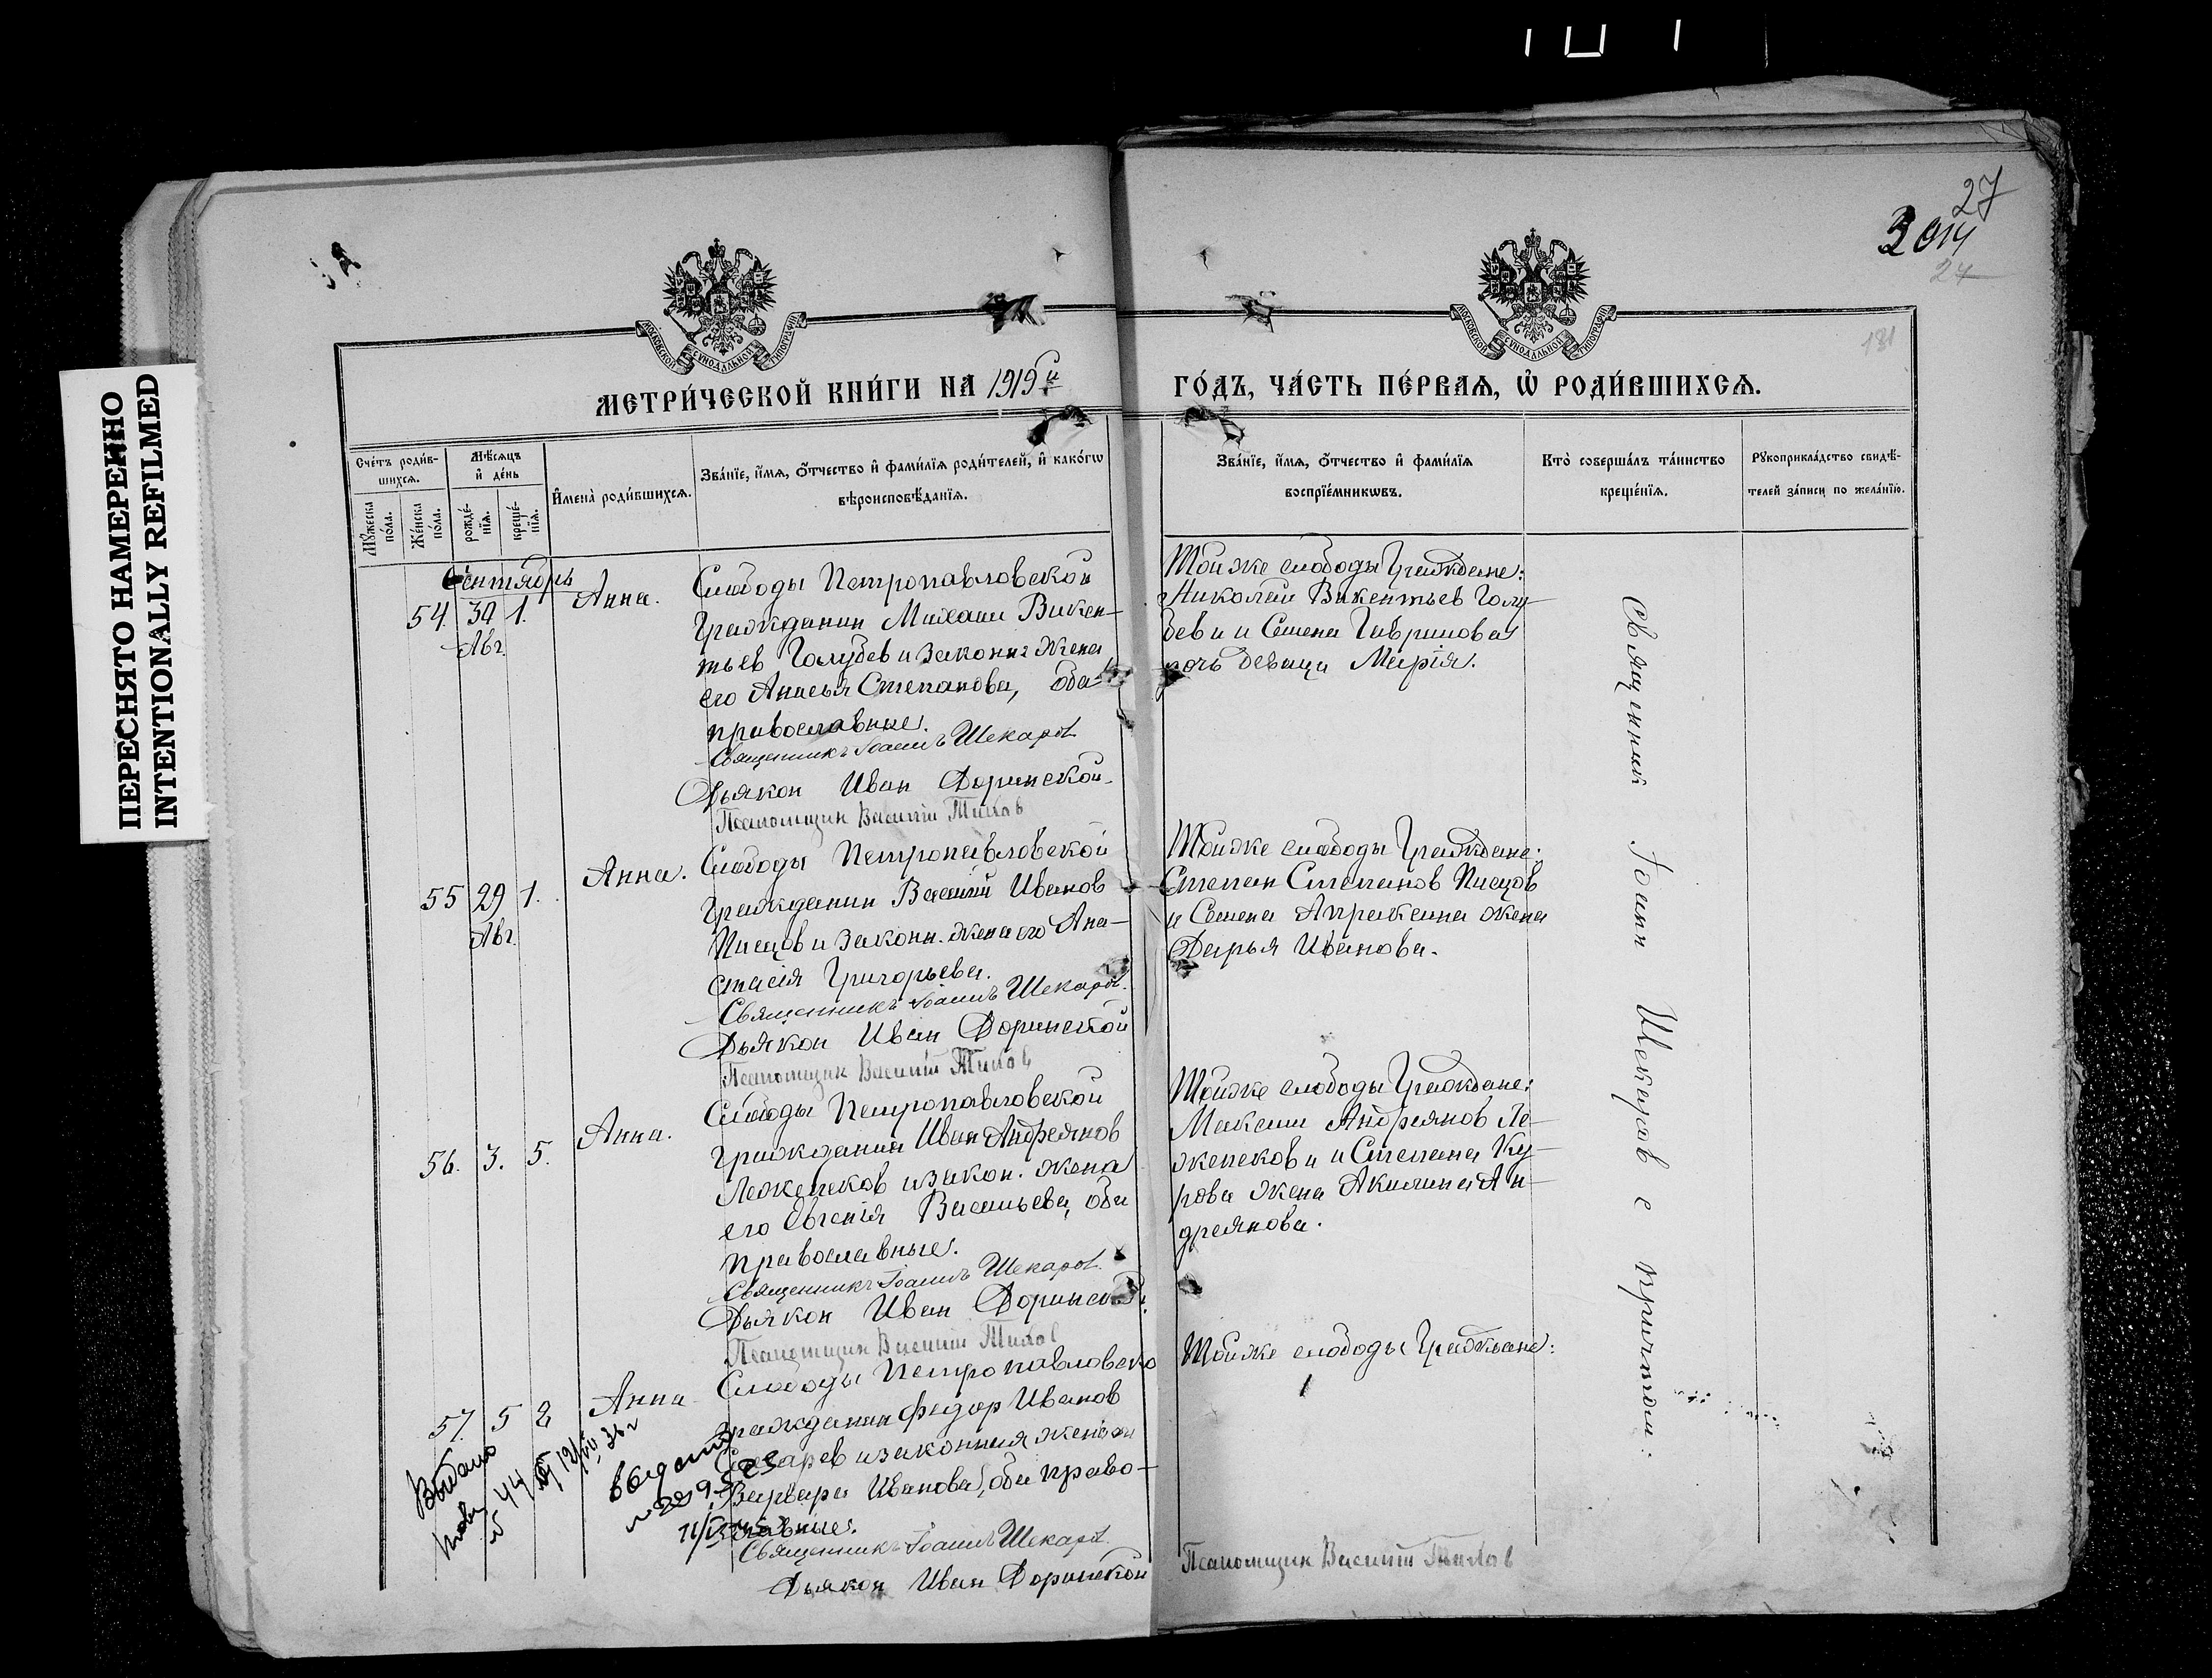 ПЕРЕСНЯТО НАМЕРЕННО
INTENTIONALLY REFILMED
27
24
131
МОСКОВСКОЙ СѴНОДАЛЬНОЙ ТИПОГРАФІИ
МОСКОВСКОЙ СѴНОДАЛЬНОЙ ТИПОГРАФІИ
МЕТРИ́ЧЕСКОЙ КНИ́ГИ НА 1919й
ГО́ДЪ, ЧА́СТЬ ПЕ́РВАѦ, Ѡ҆ РОДИ́ВШИХСѦ.
Сче́тъ роди́в-
шихсѧ.
Мꙋ́жеска
по́ла.
Же́нска
по́ла.
Мѣ́сѧцъ
и҆ де́нь
рожде́-
нїѧ.
креще́-
нїѧ.
И҆мена̀ роди́вшихсѧ.
Зва́нїе, и҆́мѧ, ѻ҆́тчество и҆ фами́лїѧ роди́телей, и҆ како́гѡ
вѣроисповѣ́данїѧ.
Зва́нїе, и҆́мѧ, ѻ҆́тчество и҆ фами́лїѧ
воспрїе́мникѡвъ.
Кто̀ соверша́лъ та́инство
креще́нїѧ.
Рꙋкоприкла́дство свидѣ́-
телей за́писи по жела́нїю.
Сентябрь
54. 30 1. Анна.
Авг.
Слободы Петропавловской
Гражданин Михаил Викен-
тьев Голубев и законн. жена
его Анисья Степанова, оба
православные.
Священникъ Іоаннъ Шекаров
Дьякон Иван Доринской
Псаломщик Василий Титов
Тойже слободы Граждане:
Николай Викентьев Голу-
бев и Семена Гаврилова
дочь девица Марія.
55 29 1. Анна.
Авг.
Слободы Петропавловской
Гражданин Василий Иванов
Писцов и законн. жена его Ана-
стасія Григорьева.
Священникъ Іоаннъ Шекаров.
Дьякон Иван Доринской
Псаломщик Василий Титов
Тойже слободы Граждане:
Степан Степанов Писцов
и Семена Апраксина жена
Дарья Иванова.
56. 3. 5. Анна.
Слободы Петропавловской
Гражданин Иван Андреянов
Лежепеков и закон. жена
его Евгенія Васильева, оба
православные.
Священникъ Іоаннъ Шекаров.
Дьякон Иван Доринской
Псаломщик Василий Титов
Тойже слободы Граждане:
Максим Андреянов Ле-
жепеков и и Степана Ку-
рова жена Акилина Ан-
дреянова.
57. 5 2 Анна
Слободы Петропавловско
Гражданин Федор Иванов
и законная жена
Варвара Иванова, оба право-
славные.
Священникъ Іоаннъ Шекаров.
Дьякон Иван Доринской
Тойже слободы Граждане:
Псаломщик Василий Титов
Священник Іоанн Шекаров с причтом:
Выдано